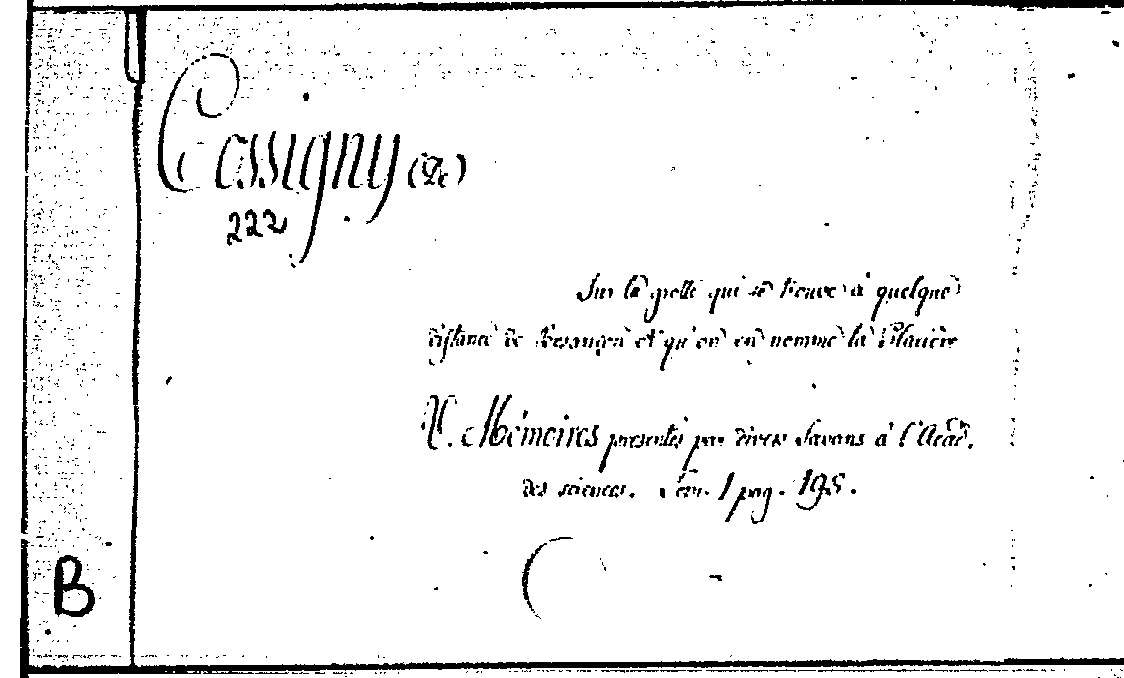 Cossigny (De)
222
Sur la grotte qui se trouve à quelque
distance de Besançon et qu'on en nomme la Glacière
V. Mémoires presentés par divers Savans à l'Acad.
des sciences. Tom. 1 pag. 195.
B